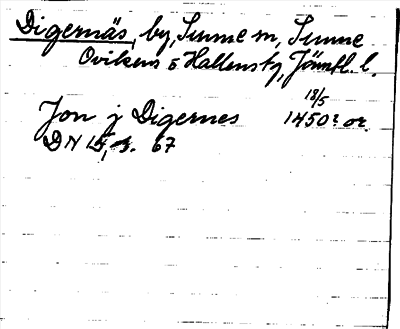 Digernäs, by, Sunne sn, Sunne
Ovikens o Hallens tg, Jämtl. l.
18/5
Jon j Digernes 1450? or.
DN 14, s. 67